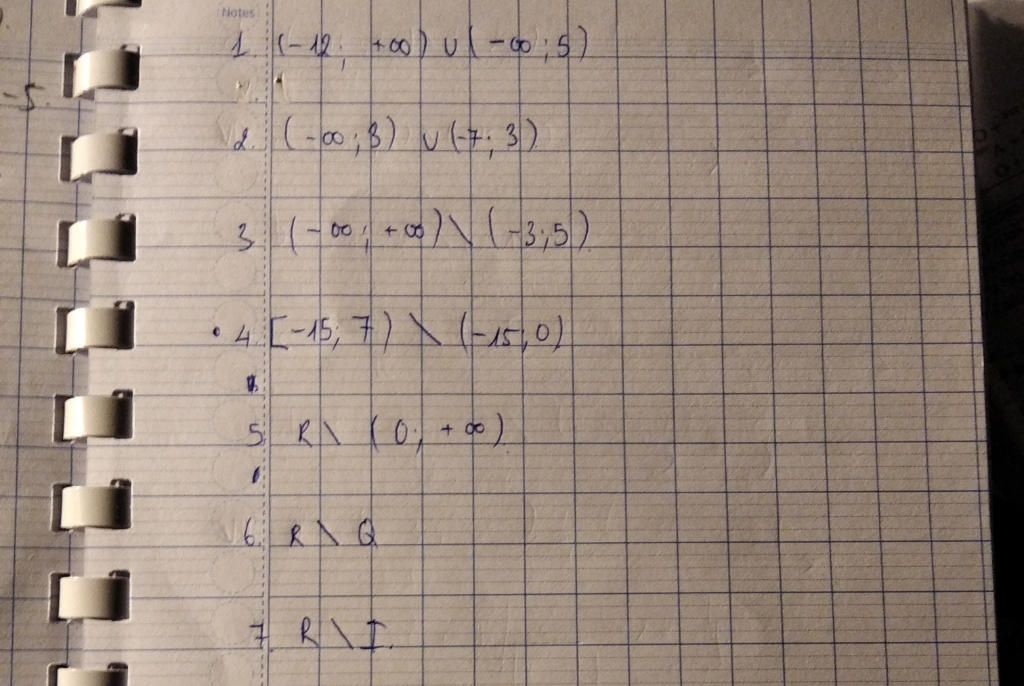 -5.
Notes
1. (-12; +∞) ∪ (-∞; 5)
2. (-∞; 3) ∪ (-7; 3)
3. (-∞; +∞) \ (-3; 5)
4. [-15; 7) \ (-15; 0)
5. R \ (0; +∞)
6. R \ Q
7. R \ I.